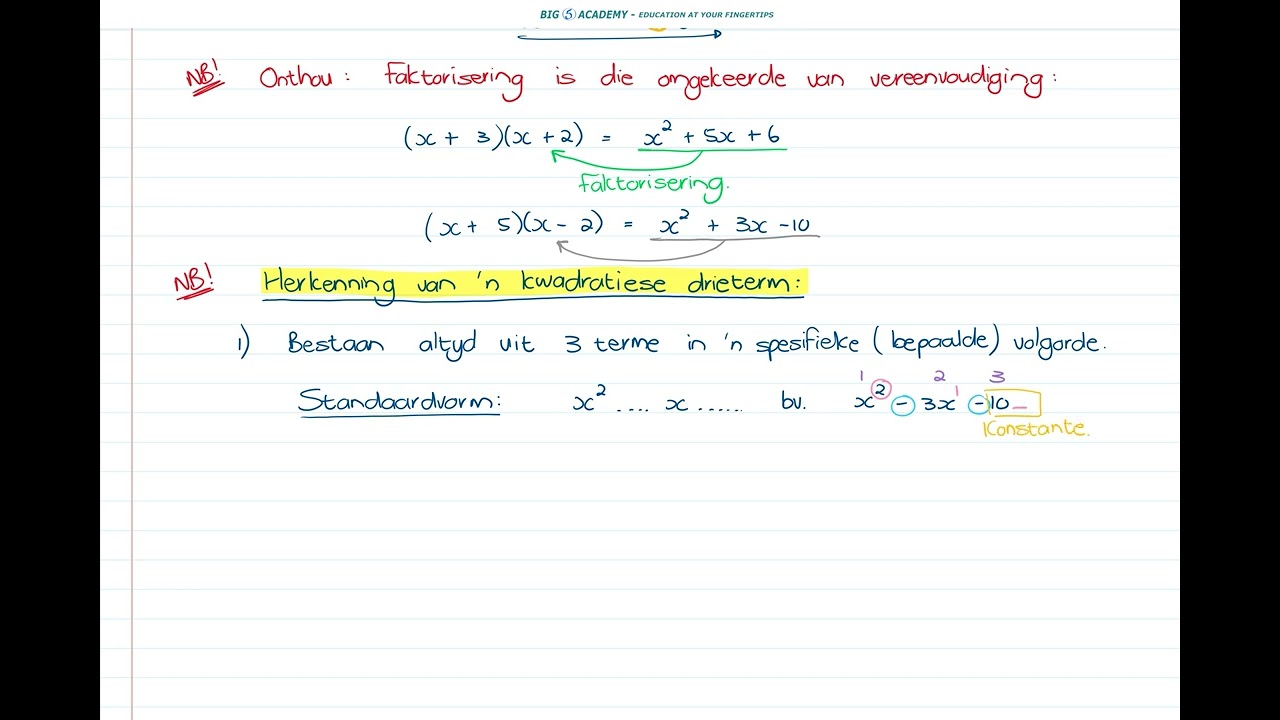 BIG 5 ACADEMY - EDUCATION AT YOUR FINGERTIPS
NB! Onthou: Faktorisering is die omgekeerde van vereenvoudiging:
(x + 3)(x + 2) = x² + 5x + 6
Faktorisering.
(x + 5)(x - 2) = x² + 3x - 10
NB! Herkenning van 'n kwadratiese drieterm:
1) Bestaan altyd uit 3 terme in 'n spesifieke (bepaalde) volgorde.
1 2 3
Standaardvorm: x² .... x ...... bv. x² - 3x¹ - 10
Konstante.